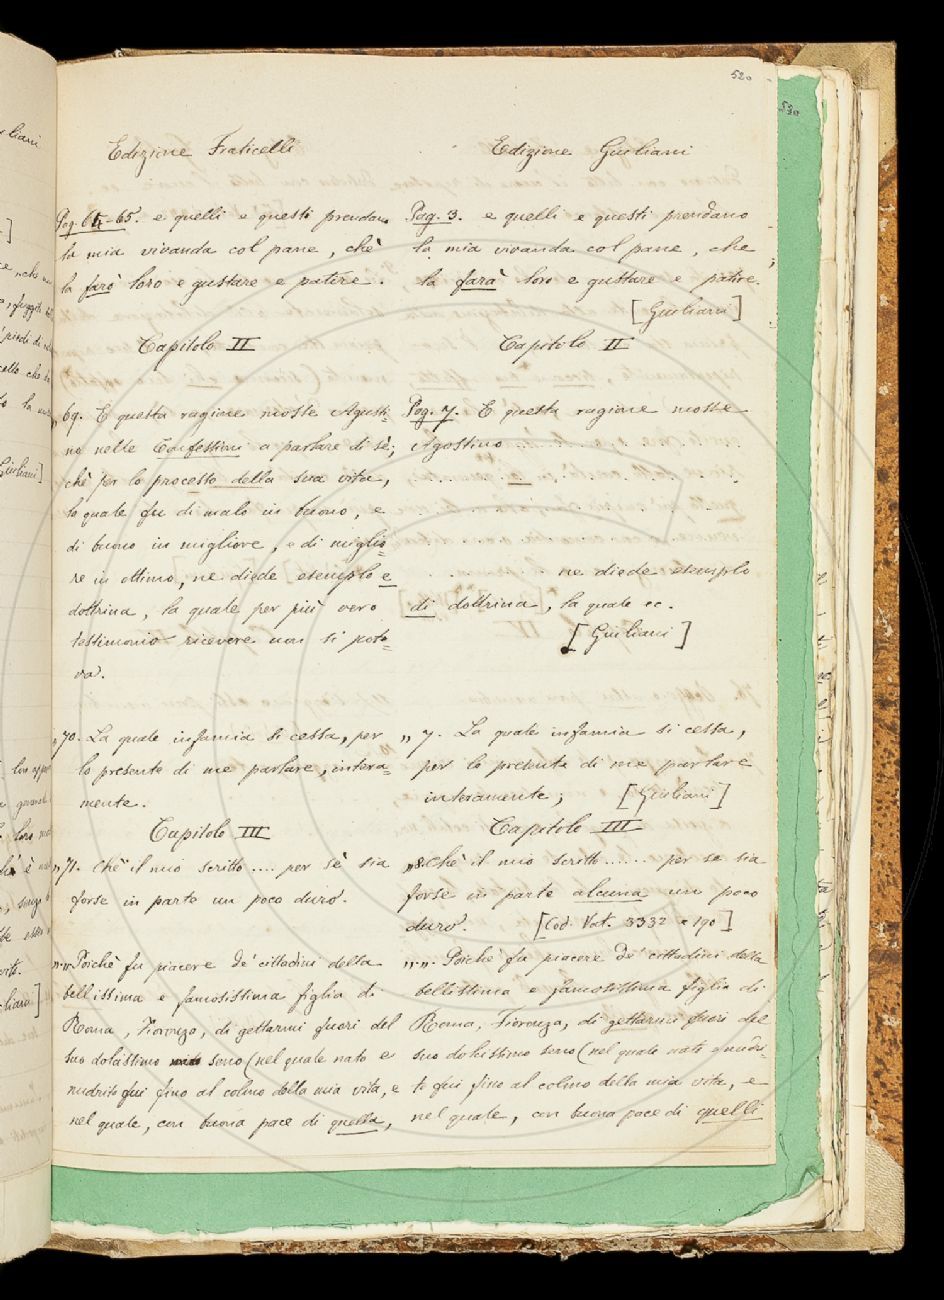 520
530
Edizione Fraticelli
Pag. 64-65. e quelli e questi prendano
la mia vivanda col pane, chè
la farò loro e gustare e patire.
Capitolo II
„ 69. E questa ragione mosse Agusti=
no nelle Confessioni a parlare di sè;
chè per lo processo della sua vita,
lo quale fu di malo in buono, e
di buono in migliore, e di miglio=
re in ottimo, ne diede esemplo e
dottrina, la quale per più vero
testimonio ricevere non si pote=
va.
„ 70. La quale infamia si cessa, per
lo presente di me parlare, intera=
mente.
Capitolo III
„ 71. Chè il mio scritto .... per sè sia
forse in parte un poco duro.
„ „ Poichè fu piacere de' cittadini della
bellissima e famosissima figlia di
Roma, Fiorenza, di gettarmi fuori del
suo dolcissimo seno (nel quale nato e
nudrito fui fino al colmo della mia vita, e
nel quale, con buona pace di quella,
Edizione Giuliani
Pag. 3. e quelli e questi prendano
la mia vivanda col pane, che
la farà loro e gustare e patire.
[Giuliani]
Capitolo II
Pag. 7. E questa ragione mosse
Agostino
ne diede esemplo
di dottrina, la quale ec.
[Giuliani]
„ 7. La quale infamia si cessa,
per lo presente di me parlare
interamente; [Giuliani]
Capitolo III
„ 8. Chè il mio scritto ...... per se sia
forse in parte alcuna un poco
duro. [Cod. Vat. 3332 e 190]
„ „ Poichè fu piacere de' cittadini della
bellissima e famosissima figlia di
Roma, Fiorenza, di gettarmi fuori del
suo dolcissimo seno (nel quale nato e nudri=
to fui fino al colmo della mia vita, e
nel quale, con buona pace di quelli